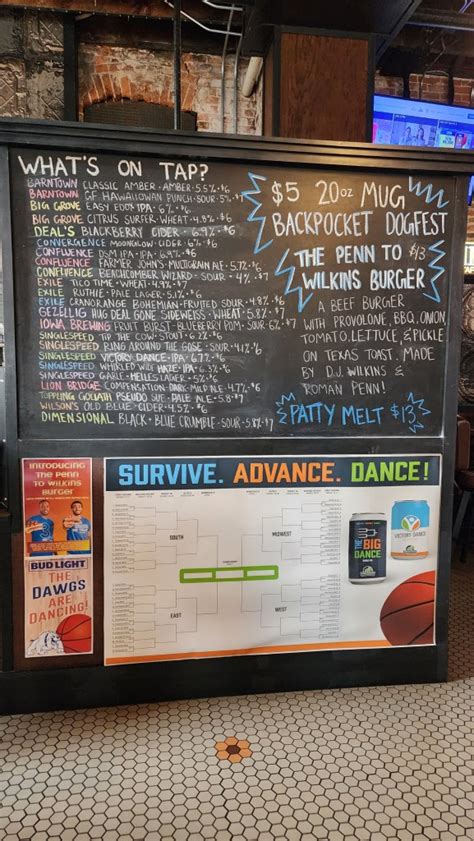 WHAT'S ON TAP?
BARNTOWN CLASSIC AMBER • AMBER • 5.5% • $6
BARNTOWN GF HAWAIIOWAN PUNCH • SOUR • 5% • $7
BIG GROVE EASY EDDY IPA • 6% • $6
BIG GROVE CITRUS SURFER • WHEAT • 4.8% • $6
DEAL'S BLACKBERRY CIDER • 6.9% • $6
CONVERGENCE MOONGLOW • CIDER • 6% • $6
CONFLUENCE DSM IPA • IPA • 6.9% • $6
CONFLUENCE FARMER JOHN'S • MULTIGRAIN ALE • 5.7% •
CONFLUENCE BEACHCOMBER WIZARD • SOUR • 4% • $7
EXILE TICO TIME • WHEAT • 4.9% • $7
EXILE RUTHIE • PALE LAGER • 5.1% • $6
EXILE CRANORANGE BOHEMIAN • FRUITED SOUR • 4.8% • $6
GEZELLIG HUG DEAL GONE SIDEWEISS • WHEAT • 5.8% • $7
IOWA BREWING FRUIT BURST • BLUEBERRY POM • SOUR • 6% • $7
SINGLESPEED TIP THE COW • STOUT • 6.2% • $6
SINGLESPEED RING AROUND THE GOSE • SOUR • $6
SINGLESPEED VICTORY DANCE • IPA • 6.7% • $6
SINGLESPEED WHIRLED WIDE HAZE • IPA • 6.3% • $6
SINGLESPEED GABLE • HELLES LAGER • 5% • $6
LION BRIDGE COMPENSATION • DARK MILD ALE • 4.7% • $6
TOPPLING GOLIATH PSEUDO SUE • PALE ALE • 5.8 • $7
WILSON'S OLD BLUE • CIDER • 4.5% • $6
DIMENSIONAL BLACK • BLUE CRUMBLE • SOUR • 5.8% • $7
$5 20oz MUG
BACKPOCKET DOGFEST
THE PENN TO $13
WILKINS BURGER
A BEEF BURGER
WITH PROVOLONE, BBQ, ONION,
TOMATO, LETTUCE, & PICKLE
ON TEXAS TOAST. MADE
BY D.J. WILKINS &
ROMAN PENN!
PATTY MELT $13
INTRODUCING
THE PENN TO
WILKINS
BURGER
BUD LIGHT
THE
DAWGS
ARE
DANCING!
SURVIVE. ADVANCE. DANCE!
SOUTH
MIDWEST
EAST
WEST
THE
BIG
DANCE
VICTORY DANCE